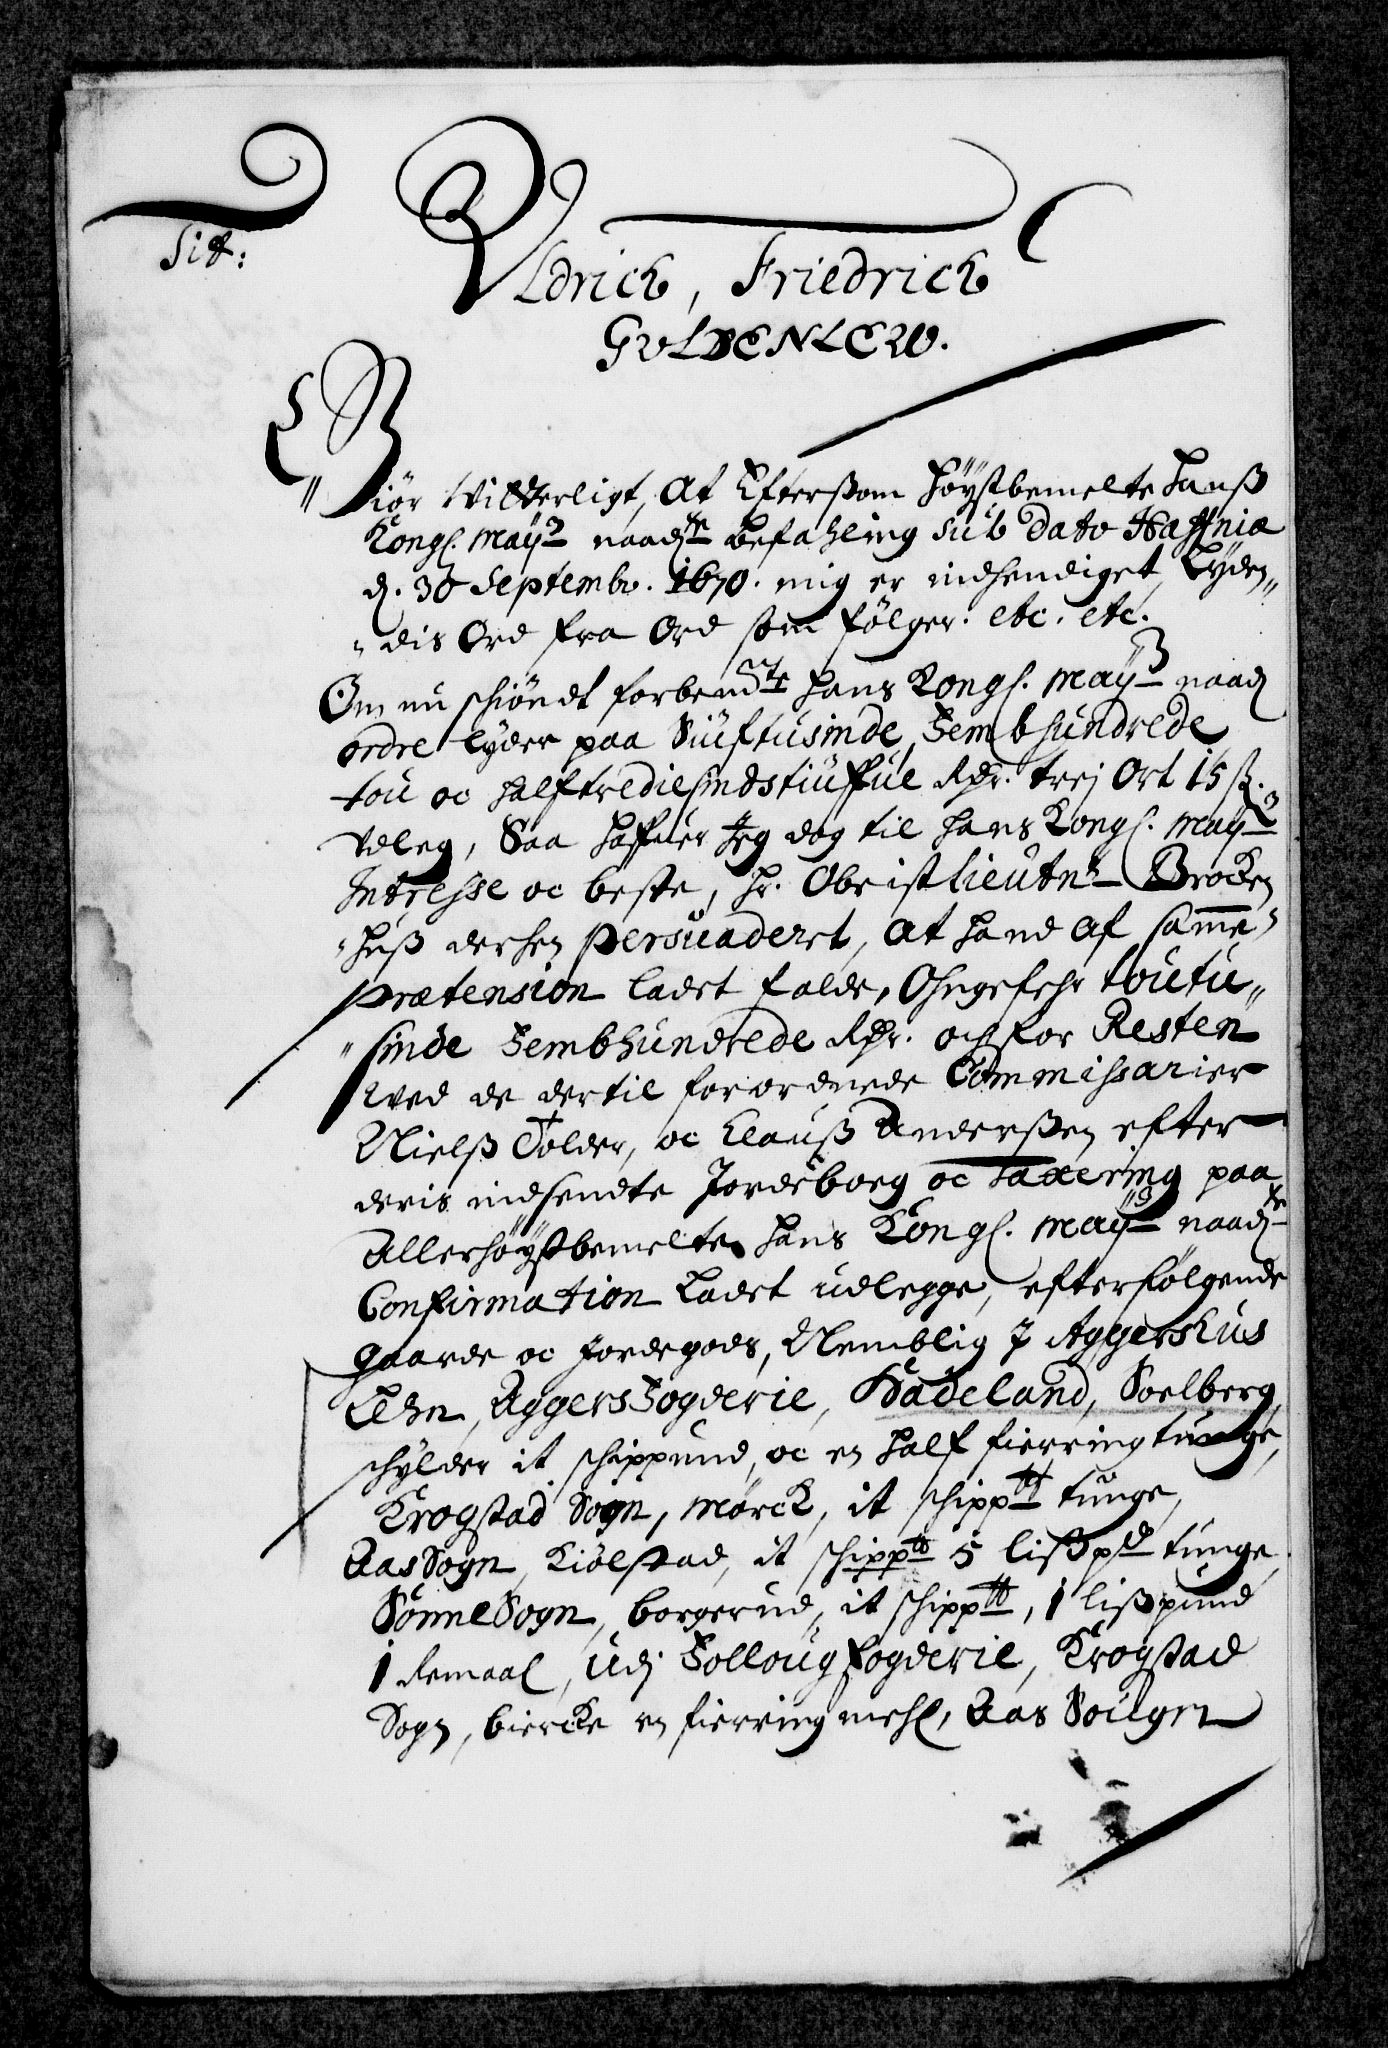 Tit:
Uldrich, Friedrich
Guldenlew.
Giör Witterligt, At Efterßom høystbemelte hanß
Kongl. May:ts naad:te befahling sub dato Haffnia
d. 30 Septembr. 1670. mig er indhendiget, Lyden„
„dis Ord fra Ord som følger. etc. etc.
Om nu schiöndt forbend:te hans Kongl. May:ts naad:
ordre lyder paa Siuftusinde, Fembhundrede
tou oc halftrediesindstiuffue Rdr. trej Ort 15 ß.
Vdleg, Saa haffuer Jeg dog til hans Kongl. May:ts
Intresse oc beste, hr. Obristlieutn:t Brocken
„huß derhen persuaderet, At hand af samme
prætension ladet falde, Ohngefehr toutu„
„sinde Fembhundrede Rdr. och for Resten
wed de dertil forordnede Commissarier
Nielß Tolder, oc Clauß Anderßen efter
deris indsendte Jordeboeg oc taxering paa
Allerhøystbemelte hans Kongl. May:ts naad:te
Confirmation Ladet udlegge, efterfølgende
Gaarde oc Jordegods, Nemblig J Aggershus
Lehn, Aggers Fogderie, Hadeland, Soelberg,
schylder it schippund, oc en half fierring tunge,
Krogstad Sogn, Mørck, it schipp:d tunge,
Aas Sogn, Kiølstad, it schipp:d 5 lißp:d tunge,
Sønne Sogn, borgerud, it schipp:d, 1 lißpund
1 Remaal, udj Folloug fogderie, Krogstad
Sogn, biercke en fierring mehl, Aas Sougn